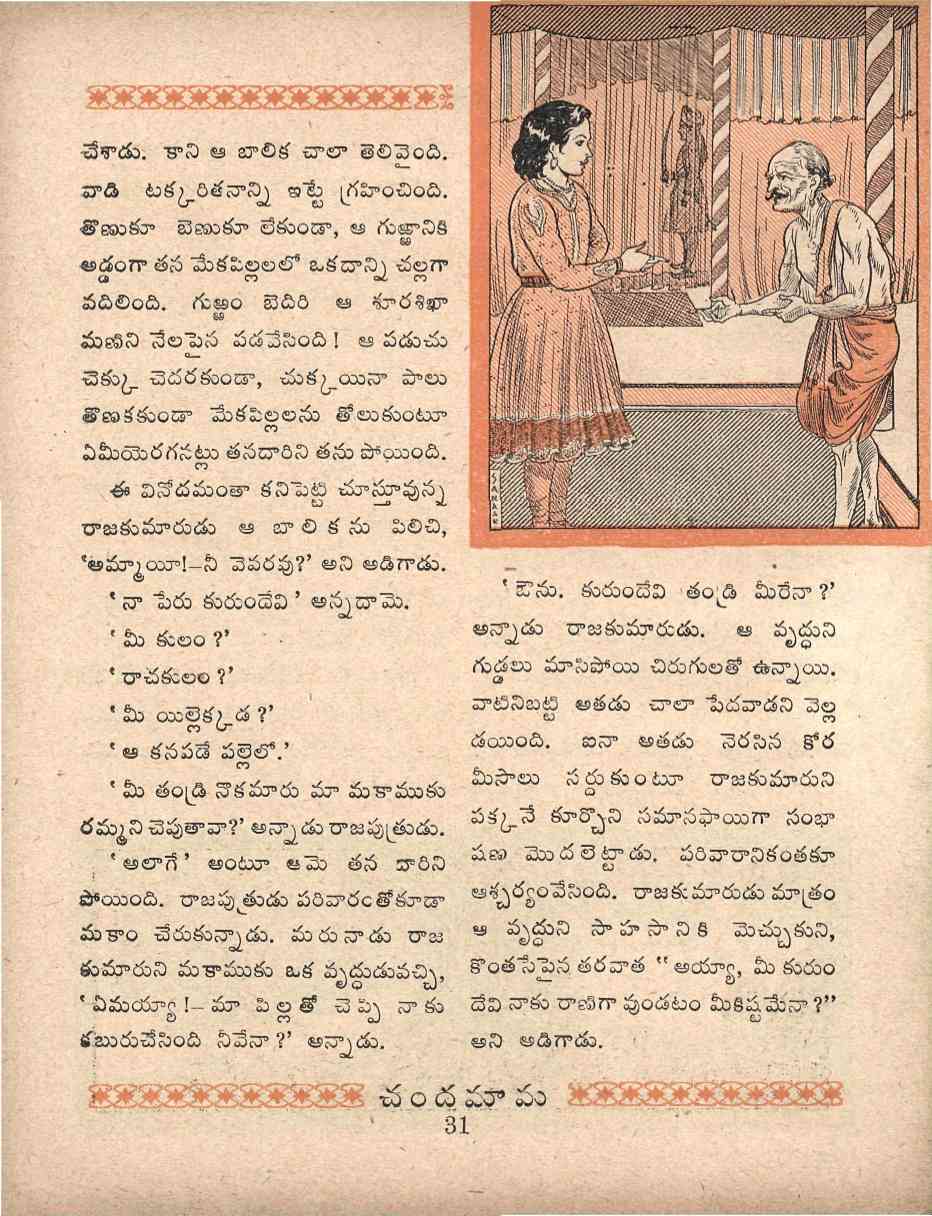 చేశాడు. కాని ఆ బాలిక చాలా తెలివైంది.
వాడి టక్కరితనాన్ని ఇట్టే గ్రహించింది.
తొణుకూ బెణుకూ లేకుండా, ఆ గుఱ్ఱానికి
అడ్డంగా తన మేకపిల్లలలో ఒకదాన్ని చల్లగా
వదిలింది. గుఱ్ఱం బెదిరి ఆ శూరశిఖా
మణిని నేలపైన పడవేసింది! ఆ పడుచు
చెక్కు చెదరకుండా, చుక్కయినా పాలు
తొణకకుండా మేకపిల్లలను తోలుకుంటూ
ఏమీయెరగనట్లు తనదారిని తను పోయింది.
ఈ వినోదమంతా కనిపెట్టి చూస్తూవున్న
రాజకుమారుడు ఆ బాలికను పిలిచి,
'అమ్మాయీ!—నీ వెవరవు?' అని అడిగాడు.
'నా పేరు కురుందేవి' అన్నదామె.
'మీ కులం?'
'రాచకులం?'
'మీ యిల్లెక్కడ?'
'ఆ కనపడే పల్లెలో.'
'మీ తండ్రి నొకమారు మా మకాముకు
రమ్మని చెపుతావా?' అన్నాడు రాజపుత్రుడు.
'అలాగే' అంటూ ఆమె తన దారిని
పోయింది. రాజపుత్రుడు పరివారంతోకూడా
మకాం చేరుకున్నాడు. మరునాడు రాజ
కుమారుని మకాముకు ఒక వృద్ధుడువచ్చి,
'ఏమయ్యా!— మా పిల్లతో చెప్పి నాకు
కబురుచేసింది నీవేనా?' అన్నాడు.
SANKAR
'ఔను. కురుందేవి తండ్రి మీరేనా?'
అన్నాడు రాజకుమారుడు. ఆ వృద్ధుని
గుడ్డలు మాసిపోయి చిరుగులతో ఉన్నాయి.
వాటినిబట్టి అతడు చాలా పేదవాడని వెల్ల
డయింది. ఐనా అతడు నెరసిన కోర
మీసాలు సర్దుకుంటూ రాజకుమారుని
పక్కనే కూర్చొని సమానఫాయిగా సంభా
షణ మొదలెట్టాడు. పరివారానికంతకూ
ఆశ్చర్యంవేసింది. రాజకుమారుడు మాత్రం
ఆ వృద్ధుని సాహసానికి మెచ్చుకుని,
కొంతసేపైన తరవాత "అయ్యా, మీ కురుం
దేవి నాకు రాణిగా వుండటం మీకిష్టమేనా?"
అని అడిగాడు.
చందమామ
31